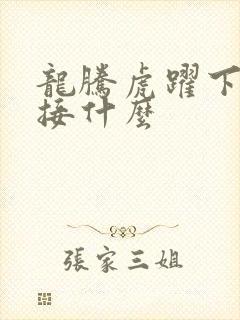 龍騰虎躍下
接什麼
張家三姐